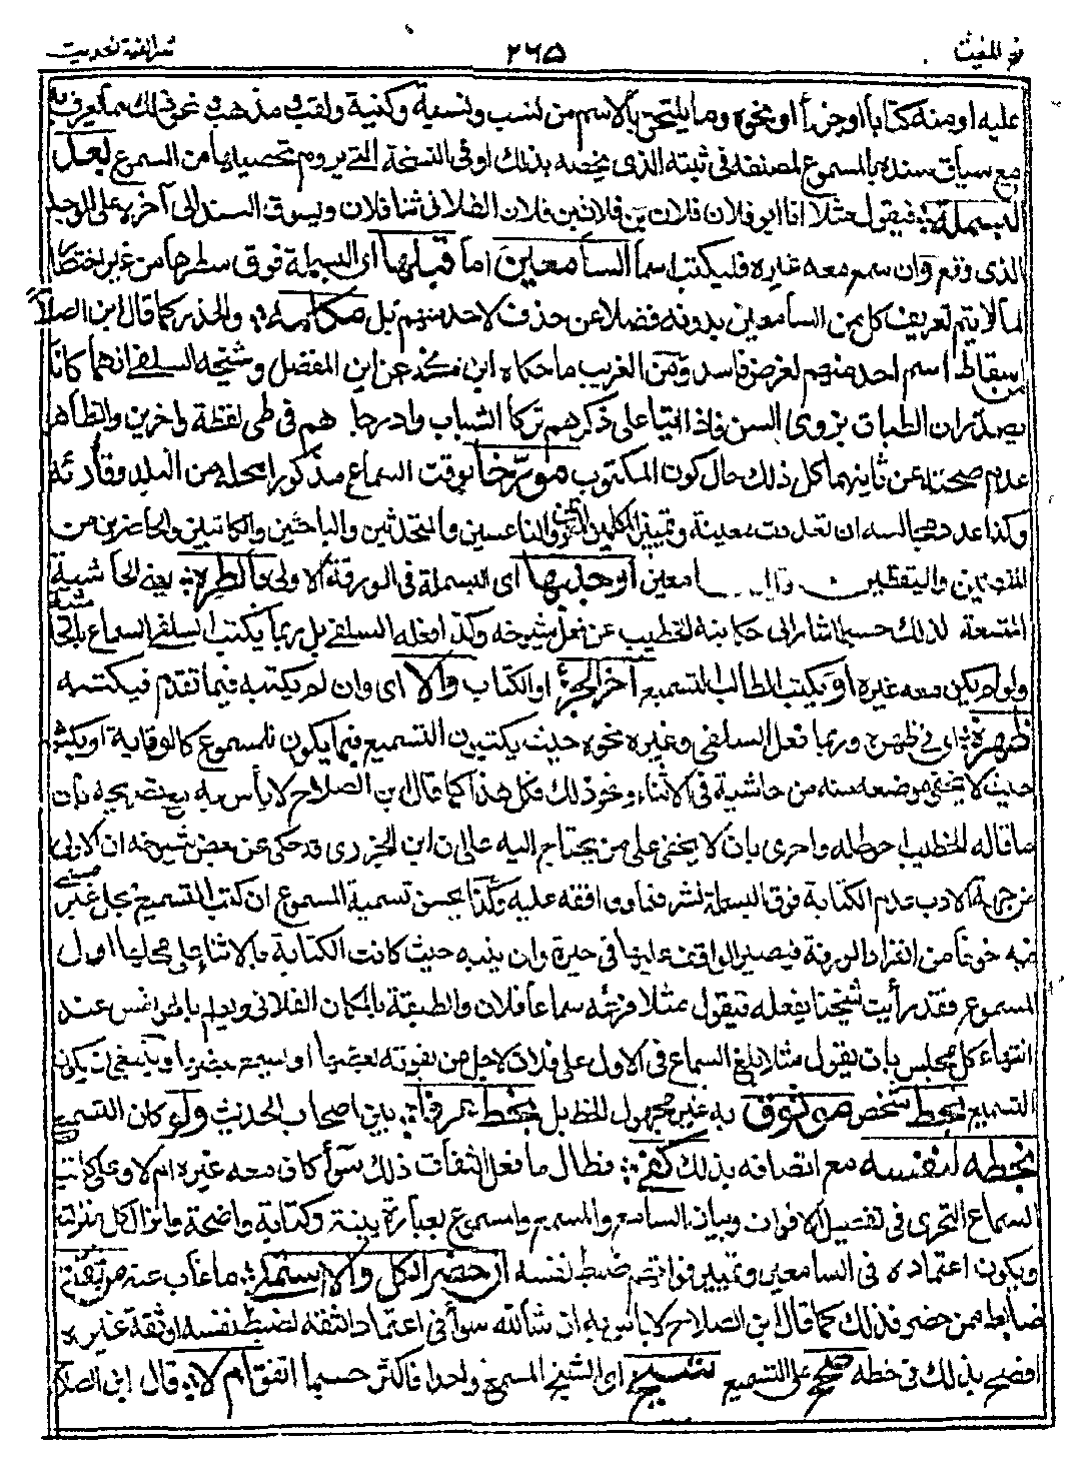 فتح المغيث ٢٦٥ شرح الفية الحديث
عليه او منه كتابا او جزأ او نحوه وما يلتحق بالاسم من نسب ونسبة وكنية ولقب ومذهب ونحو ذلك مما يعرف به
مع سياق سنده بالمسموع لمصنفه في ثبته الذي يخصه بذلك او في النسخة التي يروم تحصيلها من المسموع بعد
البسملة فيقول مثلا انا ابو فلان فلان بن فلان بن فلان الفلاني ثنا فلان ويسوق السند الى آخره على الوجه
الذي وقع وان سمع معه غيره فليكتب اسما السامعين اما قبلها اي البسملة فوق سطرها من غير اختصار
لما لا يتم تعريف كل من السامعين بدونه فضلا عن حذف لاحد منهم بل مكملة والحذر كما قال ابن الصلاح
من اسقاط اسم احد منهم لغرض فاسد ومن الغريب ما حكاه ابن عن ابن المفضل وشيخه السلفي انهما كانا
يصدران الطباق بذوي السن فاذا اتيا على ذكرهم تركا الشباب وادرجا هم في طي لفظة واخرين والظاهر
عدم صحته عن ثانيهما كل ذلك حال كون المكتوب مورخا بوقت السماع مذكورا محله من البلد وقارئه
وكذا عدد مجالسه ان تعددت معينة وتمييز المكلمين والناعسين والمتحدثين والباحثين والكاتبين والحاضرين من
والمتيقظين امعين او جنبها اي البسملة في الورقة الاولى بالطره يعني الحاشية
المتسعة لذلك حسبما اشار الى حكايته الخطيب عن فعل شيوخه وكذا فعله السلفي بل ربما يكتب السلفي السماع
ولو لم يكن معه غيره او يكتب الطالب التسميع آخر الجزء او الكتاب والا اي وان لم يكتبه فيما تقدم فيكتبه
ظهره اي في ظهره وربما فعل السلفي وغيره نحوه حيث يكتبون التسميع فيما يكون للمسموع كالوقاية او يكتب
حيث لا يخفى موضعه منه من حاشية في الاثناء ونحو ذلك فكل هذا كما قال ابن الصلاح لا بأس به مع تصريحه بان
ما قاله الخطيب احوط له واحرى بان لا يخفى على من يحتاج اليه على ان ابن الجزري قد حكى عن بعض شيوخه ان الاولى
من جهة الادب عدم الكتابة فوق البسملة لشرفها ووافقه عليه وكذا يحسن تسمية المسموع ان كتب التسميع بمحل غير
به خوفا من انفراد الورقة فيصير الواقف عليها في حيرة وان ينبه حيث كانت الكتابة بالاثناء على محلها اول
المسموع فقد رأيت شيخنا يفعله فيقول مثلا فرغه سماعا فلان والطبقة بالمكان الفلاني ويعلم بالهامش عند
انتهاء كل مجلس بان يقول مثلا بلغ السماع في الاول على فلان لاجل من يفوته بعضها او يسمع بعضها وينبغي ان يكون
التسميع بخط شخص موثوق به غير مجهول الخط بل بخط عرفا بين اصحاب الحديث ولو كان التسميع
بخطه لنفسه مع اتصافه بذلك كفى فطال ما فعل الثقات ذلك سوأ كان معه غيره ام لا وعلى كاتب
السماع التحري في تفصيل الافوات وبيان السامع والمسمع والمسموع بعبارة بينة وكتابة واضحة وانزال كل منزلته
ويكون اعتماده في السامعين وتمييز فواتهم ضبط نفسه ان حضر الكل والا استملى ما غاب عنه من ثقة
ضابط ممن حضر فذلك كما قال ابن الصلاح لا بأس به ان شا الله سوأ في اعتماد الثقة لضبط نفسه او ثقة غيره
افصح بذلك في خطه صحح على التسميع شيخ اي الشيخ المسمع واحدا فاكثر حسبما اتفق ام لا قال ابن الصلاح